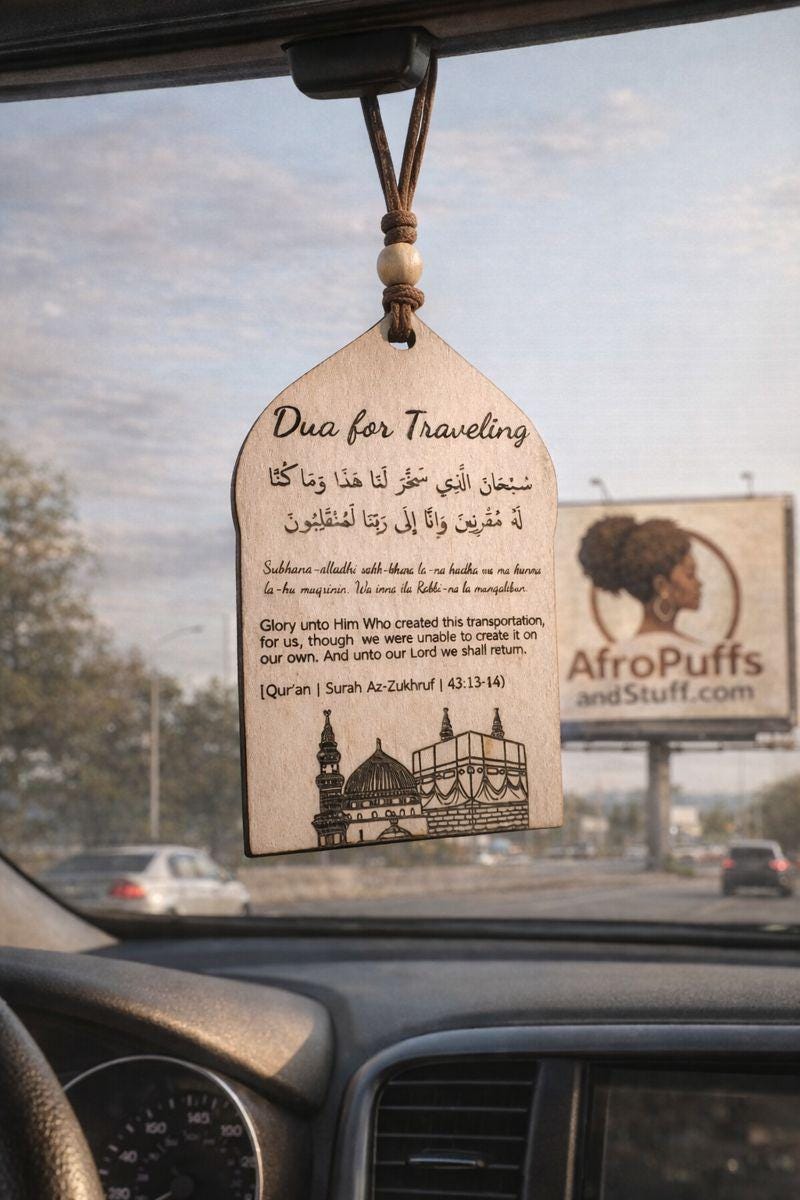 Dua for Traveling
سُبْحَانَ الَّذِي سَخَّرَ لَنَا هَذَا وَمَا كُنَّا
لَهُ مُقْرِنِينَ وَإِنَّا إِلَى رَبِّنَا لَمُنْقَلِبُونَ
Subhana-alladhi sakh-khara la-na hadha ma
la-hu muqrinin. Wa inna ila Rabbi-na la
Glory unto Him Who created this transportation,
for us, though we were unable to create it on
our own. And unto our Lord we shall return.
[Qur'an | Surah Az-Zukhruf | 43:13-14)
AfroPuffs
andStuff.com